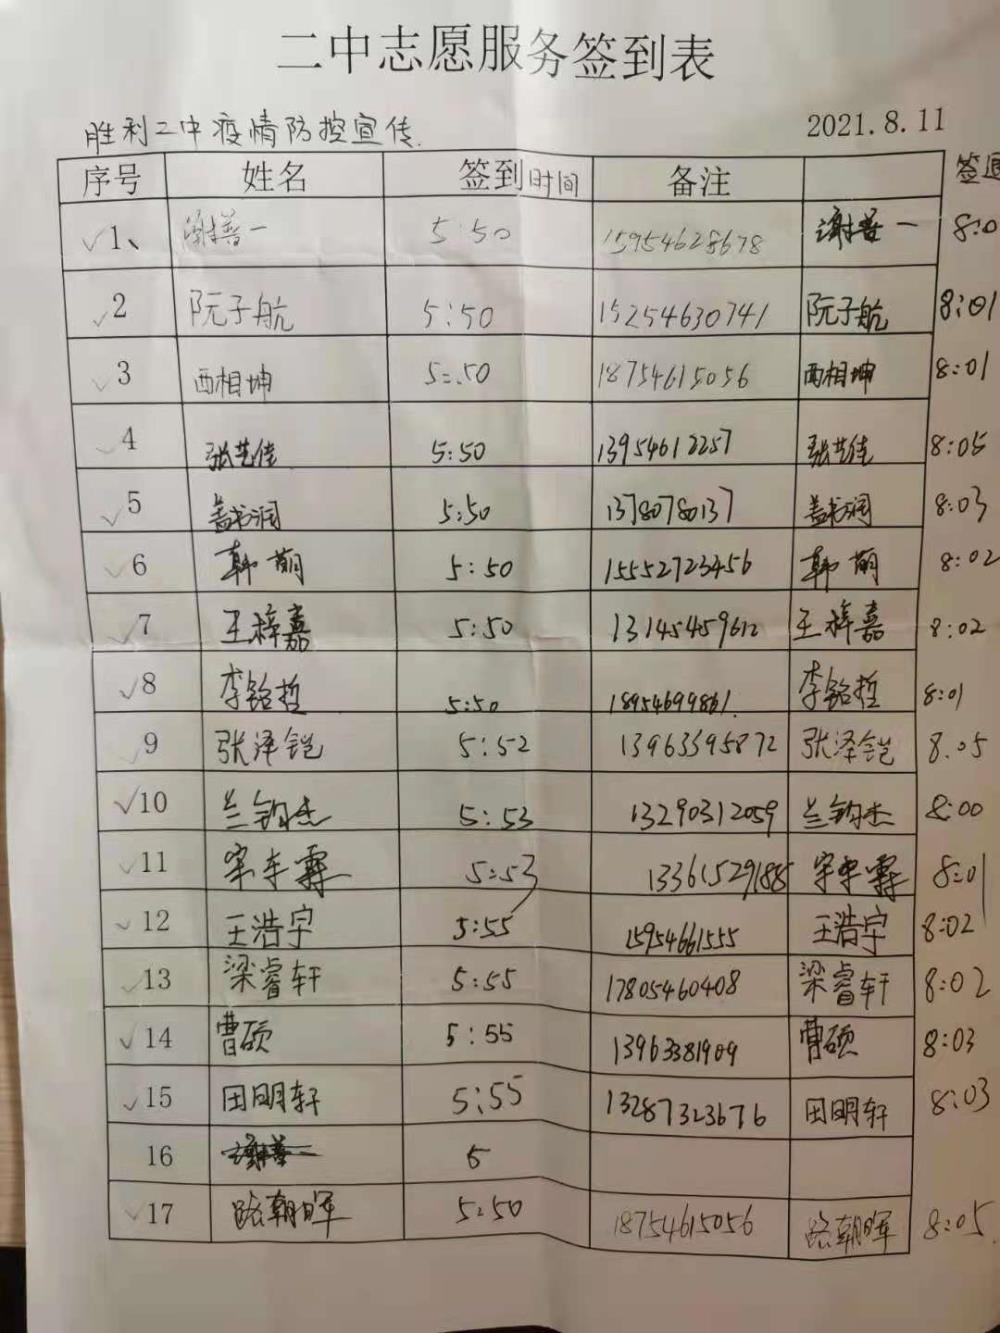 二中志愿服务签到表
胜利二中疫情防控宣传. 2021.8.11
序号 姓名 签到时间 备注 签退
✓1、 谢普一 5:50 15954628678 谢普一 8:0
✓2 阮子航 5:50 15254630741 阮子航 8:01
✓3 西相坤 5:50 18754615056 西相坤 8:01
✓4 张艺佳 5:50 13954612257 张艺佳 8:05
✓5 盖书润 5:50 13780780137 盖书润 8:03
✓6 韩萌 5:50 15552723456 韩萌 8:02
✓7 王梓嘉 5:50 13145459612 王梓嘉 8:02
✓8 李铭哲 5:50 18954699861. 李铭哲 8:01
✓9 张泽铠 5:52 13963395872 张泽铠 8.05
✓10 兰钧杰 5:53 13290312059 兰钧杰 8:00
✓11 5:53 13361529188 8:01
✓12 王浩宇 5:55 15954661555 王浩宇 8:02
✓13 梁睿轩 5:55 17805460408 梁睿轩 8:02
✓14 曹硕 5:55 13963381909 曹硕 8:03
✓15 田明轩 5:55 13287323676 田明轩 8:03
16 5
✓17 路朝晖 5:50 18754615056 路朝晖 8:05